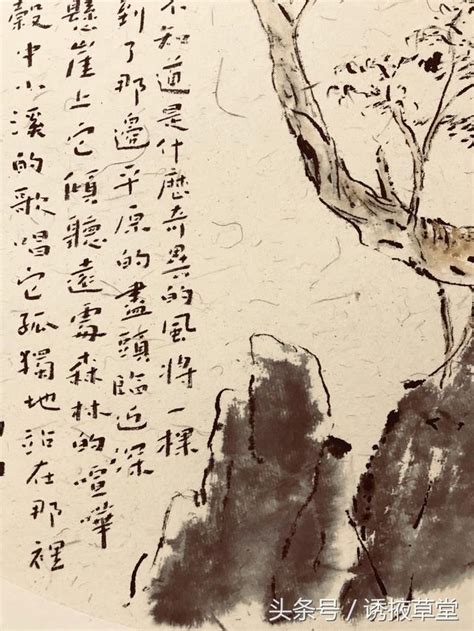 不知道是什麼奇異的風將一棵
到了那邊平原的盡頭臨近深
懸崖上它傾聽遠處森林的喧嘩
穀中小溪的歌唱它孤獨地站在那裡
头条号／诱掖草堂